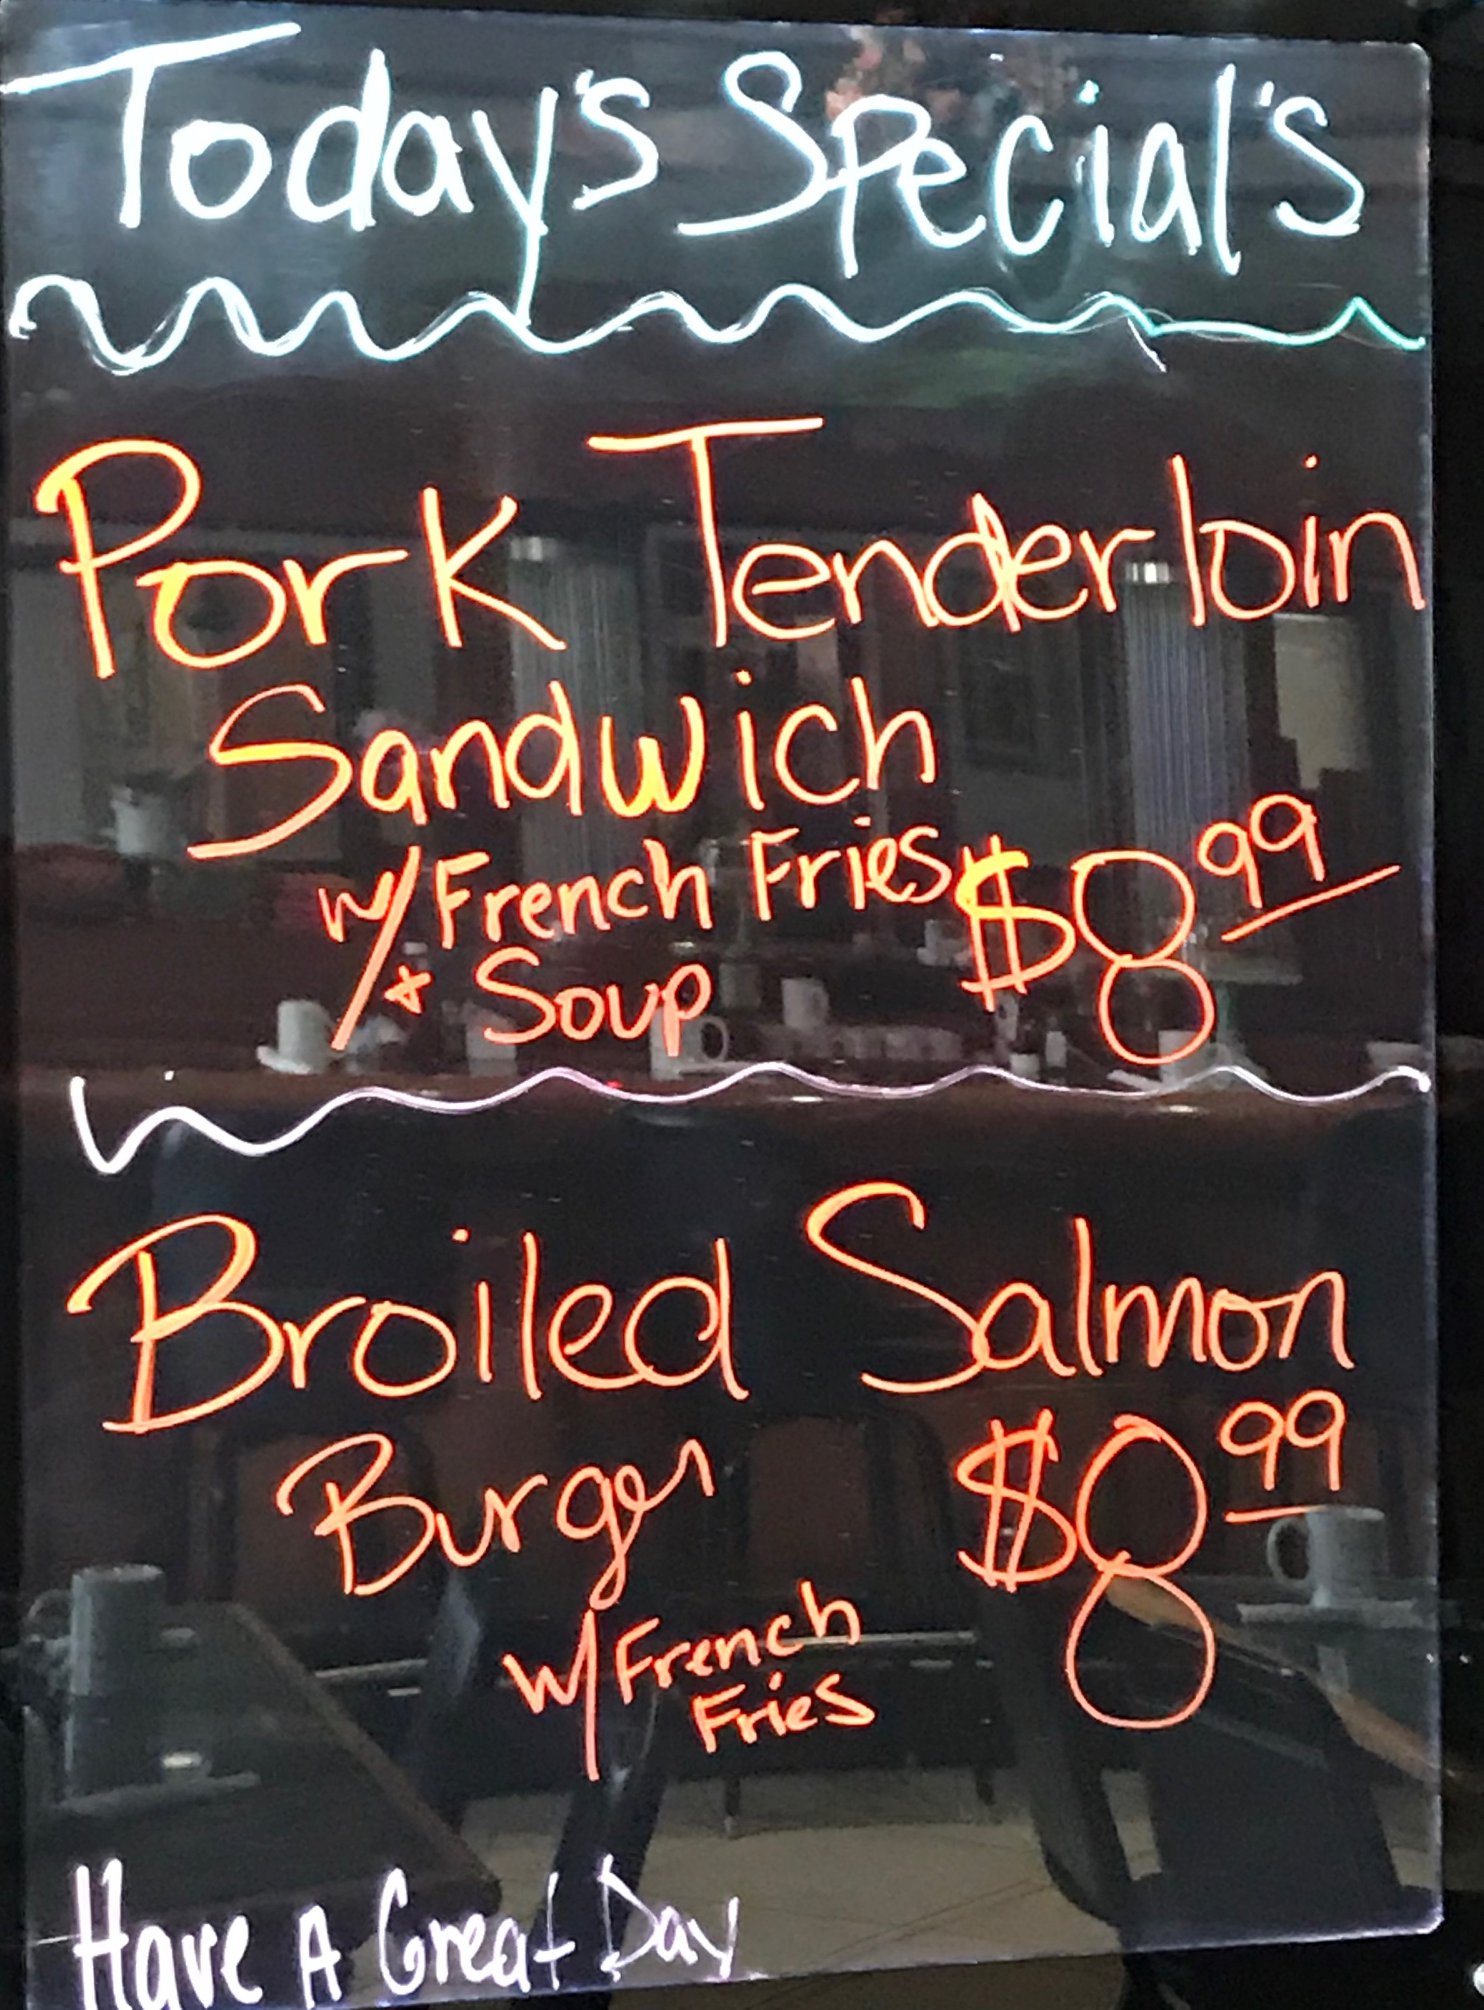 Today's Special's
Pork Tenderloin
Sandwich
w/ French Fries $8.99
+ Soup
Broiled Salmon
Burger $8.99
w/ French
Fries
Have A Great Day